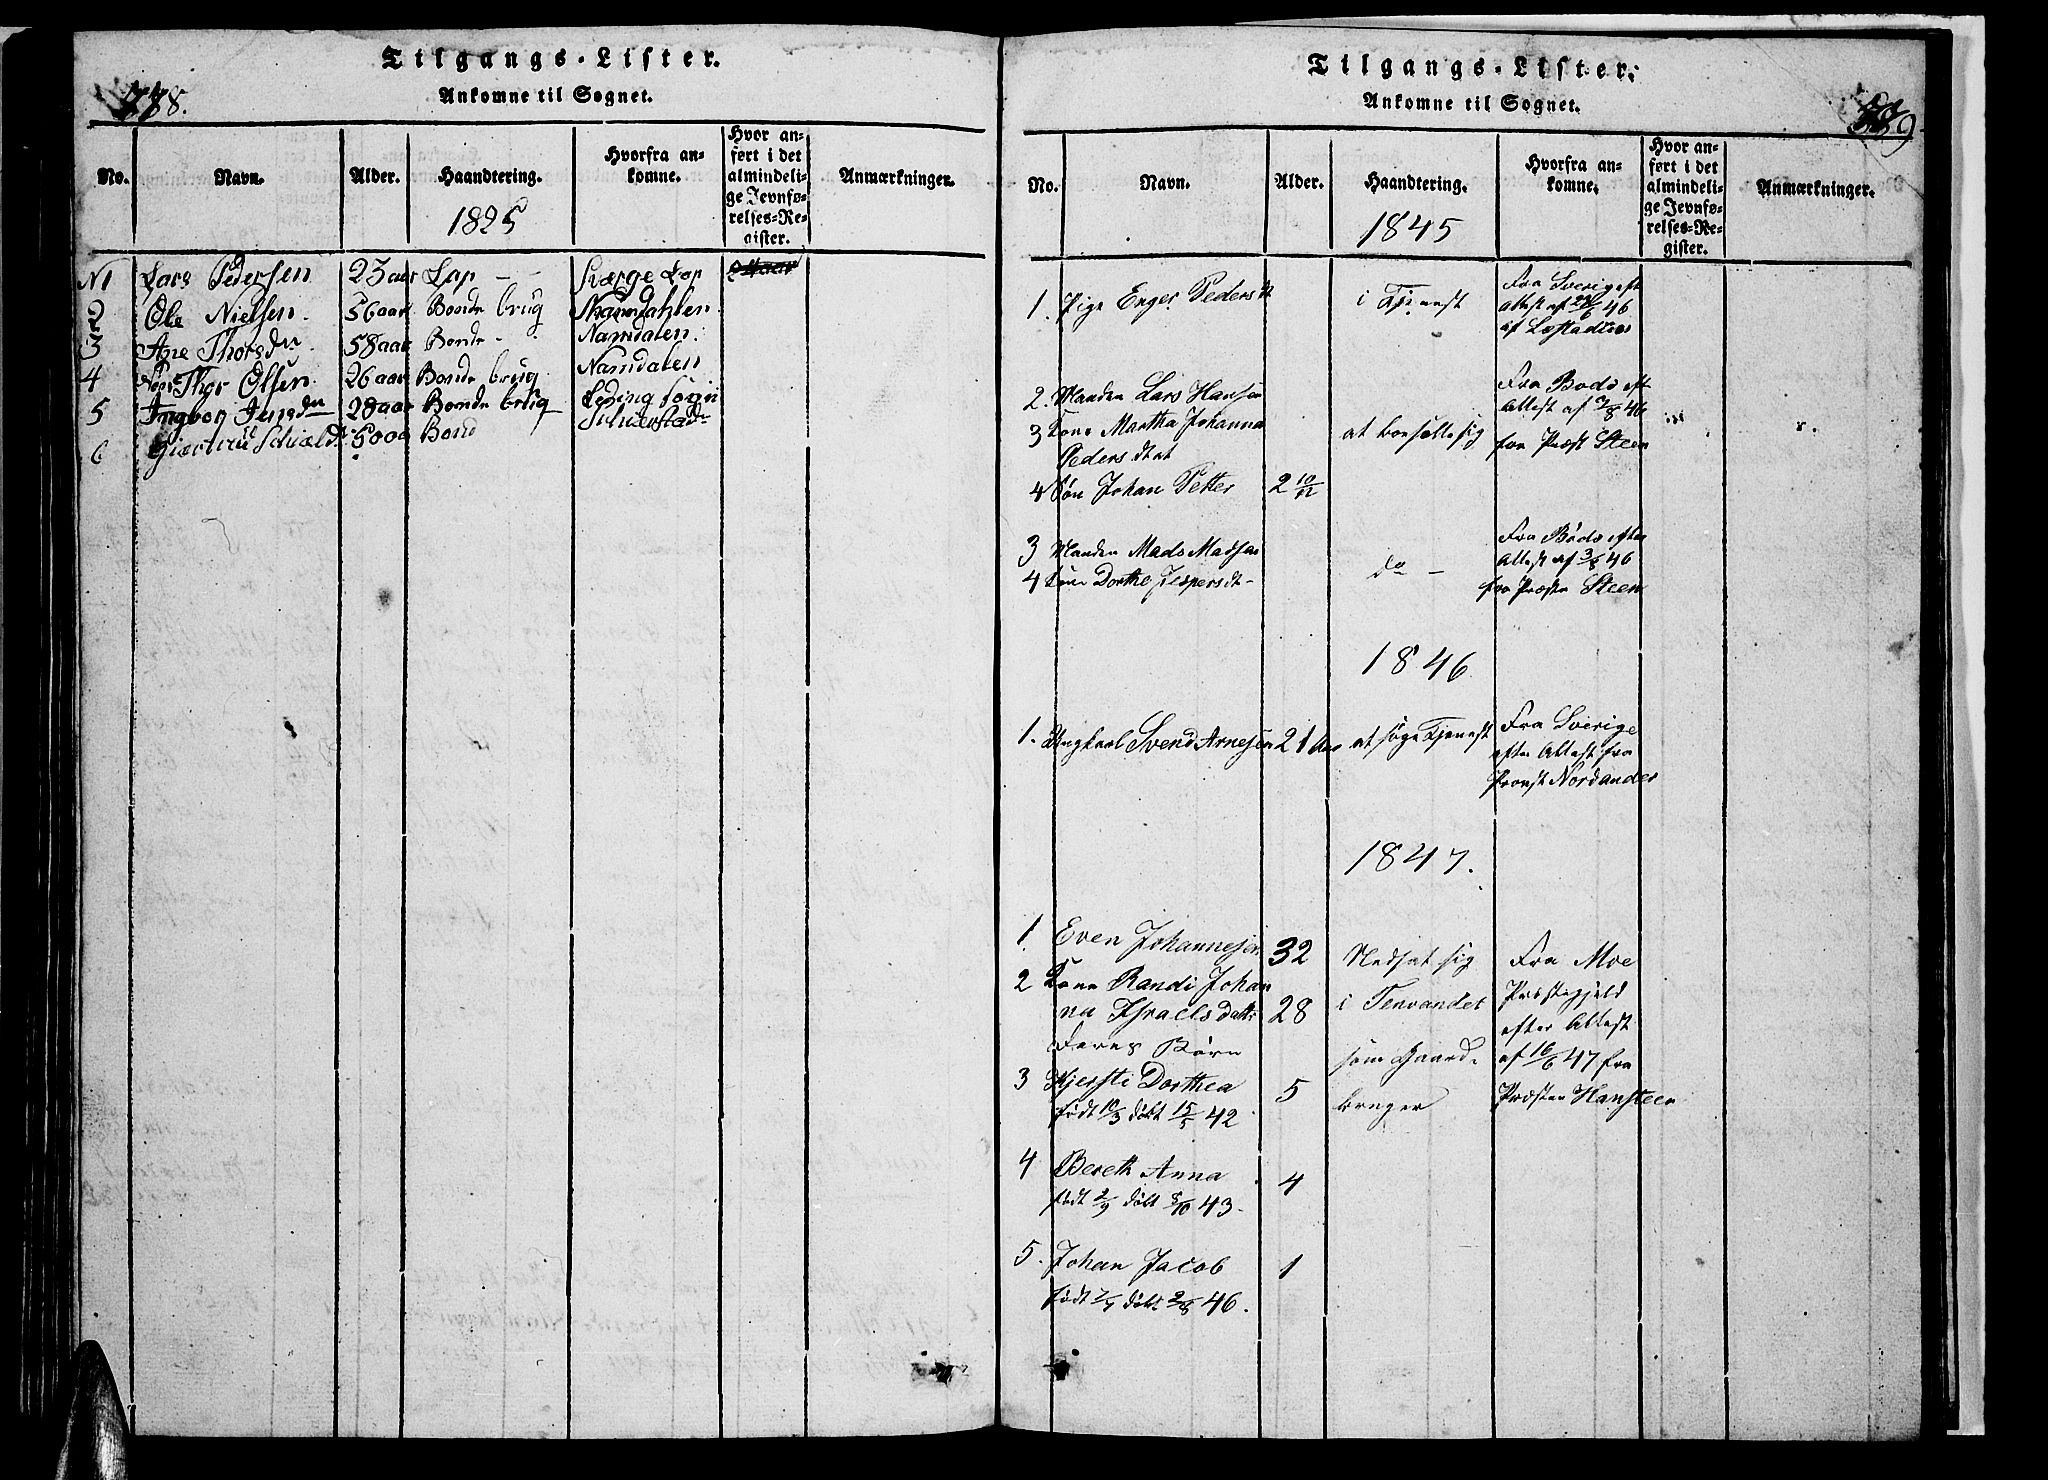 Tilgangs-Lister.
Ankomne til Sognet.
No.
Navn.
Alder.
Haandtering.
Hvorfra an-
komne.
Hvor an-
ført i det
almindeli-
ge Jevnfø-
relses-Re-
gister.
Anmærkninger.
1825
N1 Lars Pedersen 23 aar Lap - -
2 Ole Nielsen. 56 aar Bonde brug
3 Ane Thorsdn 58 aar Bonde - Namdalen.
4 Thor Olsen 26 aar Bonde brug Namdalen
5 Ingbor Jensdn 28 aar Bonde brug
6 Bond
Tilgangs-Lister.
Ankomne til Sognet.
No.
Navn.
Alder.
Haandtering.
Hvorfra an-
komne.
Hvor an-
ført i det
almindeli-
ge Jevnfø-
relses-Re-
gister.
Anmærkninger.
1845
1. Pige Enger Pedersdt i Tjenest Fra Sverig eft
Attest af 46
af Læstadius
2. Manden Lars Hansen Fra Bodö eft
Attest af 7/8 46
3 Kone Martha Johanna at bosætte sig fra Præst Steen
Pedersdtat
4 Søn Johan Petter 2 10/12
3 Manden Mads Madsen Fra Bodö efter
Attest af 3/8 46
4 Kone Dorthe Jespersdt - do - fra Præsten Steen
1846
1. Ungkarl Svend Arnesen 21 Aar at søge Tjenest Fra Sverige
efter Attest fra
Provst Nordander
1847.
1. Even Johannesen 32 Nedsat sig Fra Moe
2 Kone Randi Johan
na Israelsdattr 28 i Tenvandet Præstegjeld
efter Attest
Deres Børn som Gaard- af 16/6 47 fra
3 Kjersti Dorthea 5 bruger Præsten Hansteen
født 10/3 døbt 15/5 42
4 Bereth Anna 4
født 2/9 døbt 8/10 43.
5. Johan Jacob 1
født 7/7 døbt 2/8 46.